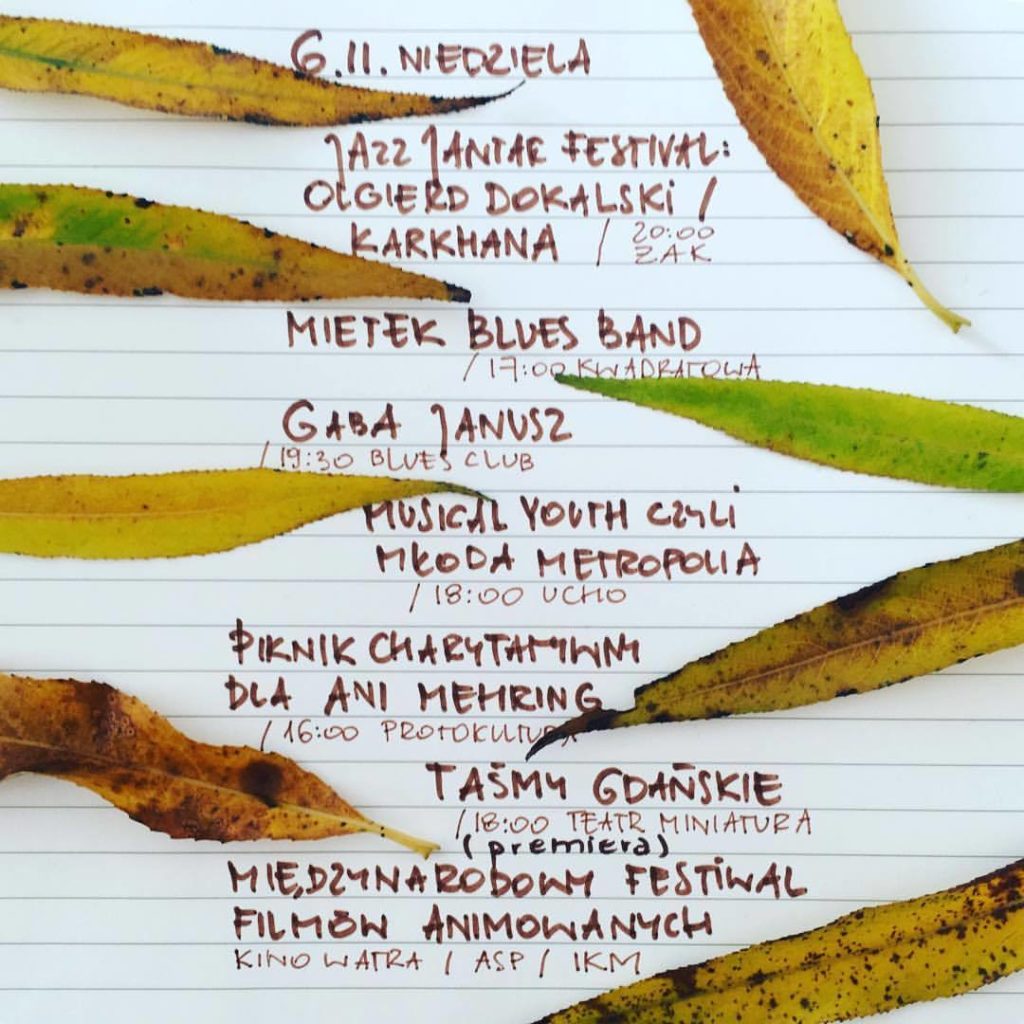 6.11. NIEDZIELA
JAZZ JANTAR FESTIVAL:
OLGIERD DOKALSKI /
KARKHANA / 20:00
ŻAK
MIETEK BLUES BAND
/ 17:00 KWADRATOWA
GABA JANUSZ
/ 19:30 BLUES CLUB
MUSICAL YOUTH CZYLI
MŁODA METROPOLIA
/ 18:00 UCHO
PIKNIK CHARYTATYWNY
DLA ANI MEHRING
/ 16:00 PROTOKULTURA
TAŚMY GDAŃSKIE
/ 18:00 TEATR MINIATURA
(premiera)
MIĘDZYNARODOWY FESTIWAL
FILMÓW ANIMOWANYCH
KINO WATRA / ASP / IKM